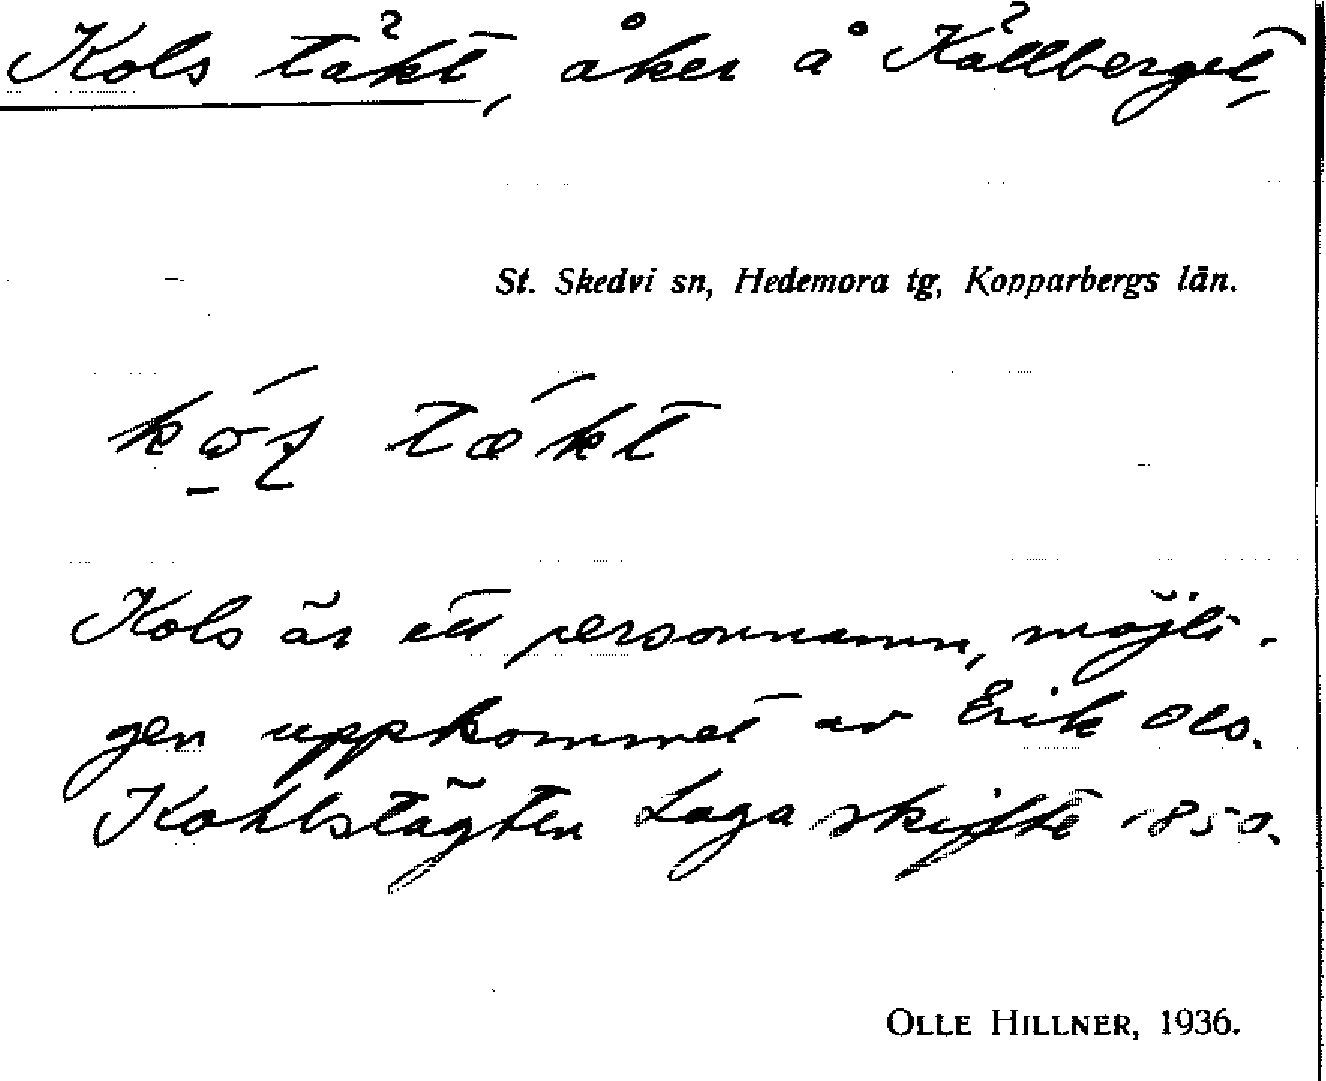 Kols täkt, åker å Källberget,
St. Skedvi sn, Hedemora tg, Kopparbergs län.
tækt
Kols är ett personnamn, möjli-
gen uppkommet av Erik Ols.
Kohlstägten Laga skifte 1850.
OLLE HILLNER, 1936.